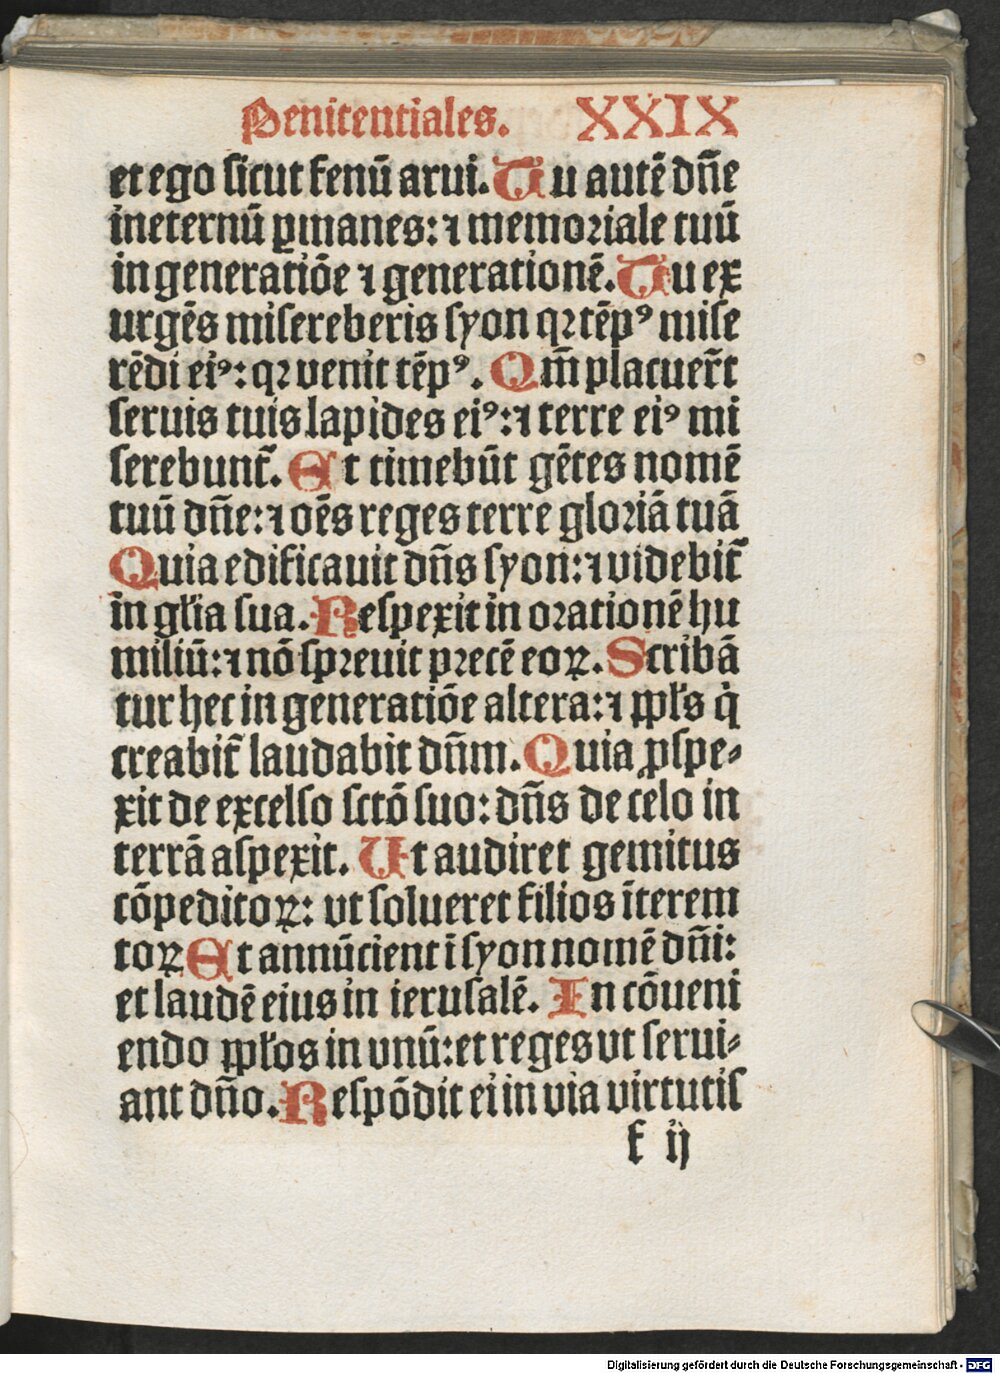 Penitentiales. XXIX
et ego sicut fenū arui. Tu autē dn̄e
ineternū ꝑmanes: ⁊ memoriale tuū
in generatiōe ⁊ generationē. Tu ex
urgēs misereberis syon qꝛ tēpꝰ mise
rēdi eiꝰ: qꝛ venit tēpꝰ. Qm̄ placuer̄t
seruis tuis lapides eiꝰ: ⁊ terre eiꝰ mi
serebunt᷑. Et timebūt gētes nomē
tuū dn̄e: ⁊ oēs reges terre gloriā tuā
Quia edificauit dn̄s syon: ⁊ videbit᷑
in gl̄ia sua. Respexit in orationē hu
miliū: ⁊ nō spreuit precē eoꝝ. Scribā
tur hec in generatiōe altera: ⁊ ppl̄s q̇
creabit᷑ laudabit dn̄m. Quia ꝓspe⸗
xit de excelso sctō suo: dn̄s de celo in
terrā aspexit. Ut audiret gemitus
cōpeditoꝝ: vt solueret filios īterem
toꝝ Et annūcient ī syon nomē dn̄i:
et laudē eius in ierusalē. In cōueni
endo ppl̄os in vnū: et reges vt serui⸗
ant dn̄o. Respōdit ei in via virtutis
f ij
Digitalisierung gefördert durch die Deutsche Forschungsgemeinschaft - DFG